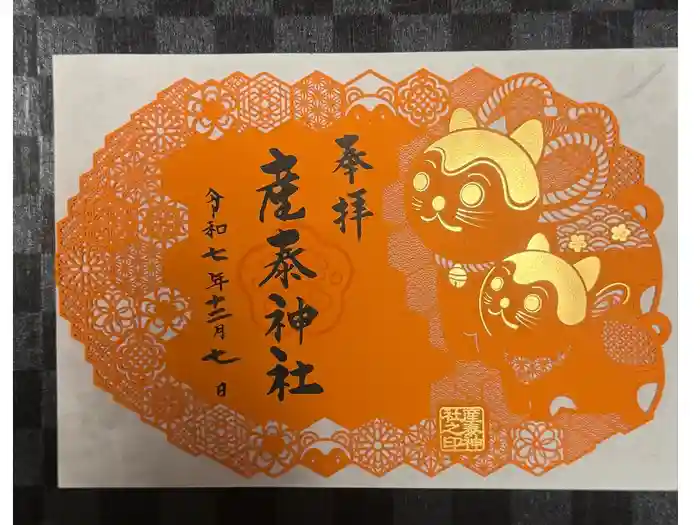 奉拝
産泰神社
令和七年十二月七日
産泰神
社之印